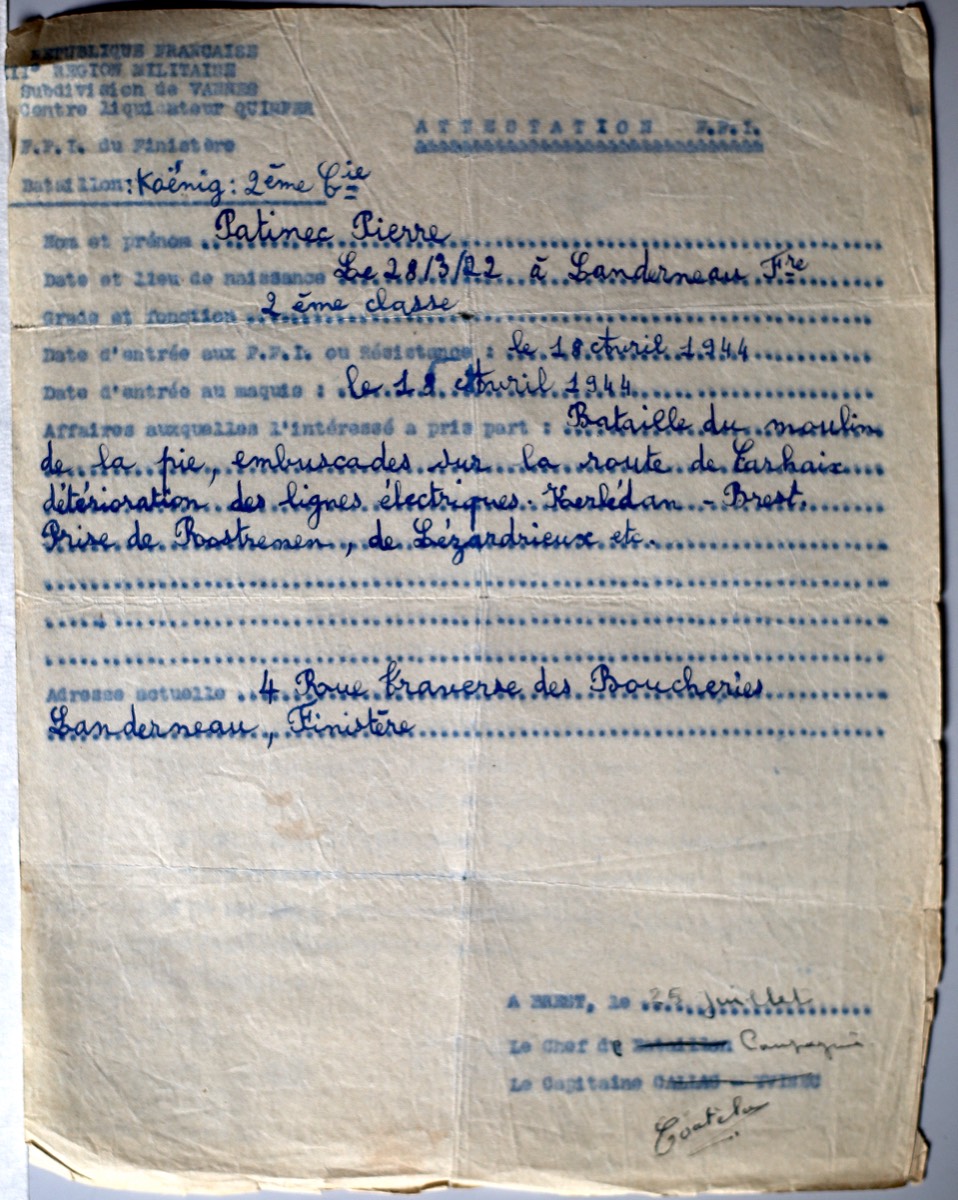 REPUBLIQUE FRANCAISE
II° REGION MILITAIRE
Subdivision de VANNES
Centre liquidateur QUIMPER
ATTESTATION F.F.I.
F.F.I. du Finistère
Bataillon: Koënig: 2ème Cie
Nom et prénom Patinec Pierre
Date et lieu de naissance Le 28/3/22 à Landerneau Fre
Grade et fonction 2ème classe
Date d'entrée aux F.F.I. ou Résistance : le 18 Avril 1944
Date d'entrée au maquis : le 18 Avril 1944
Affaires auxquelles l'intéressé a pris part : Bataille du moulin
de la pie, embuscades sur la route de Carhaix
détérioration des lignes électriques. Kerlédan - Brest.
Prise de Rostrenen, de Lézardrieux etc.
Adresse actuelle 4 Rue traverse des Boucheries
Landerneau, Finistère
A BREST, le 25 juillet
Le Chef de Bataillon Compagnie
Le Capitaine